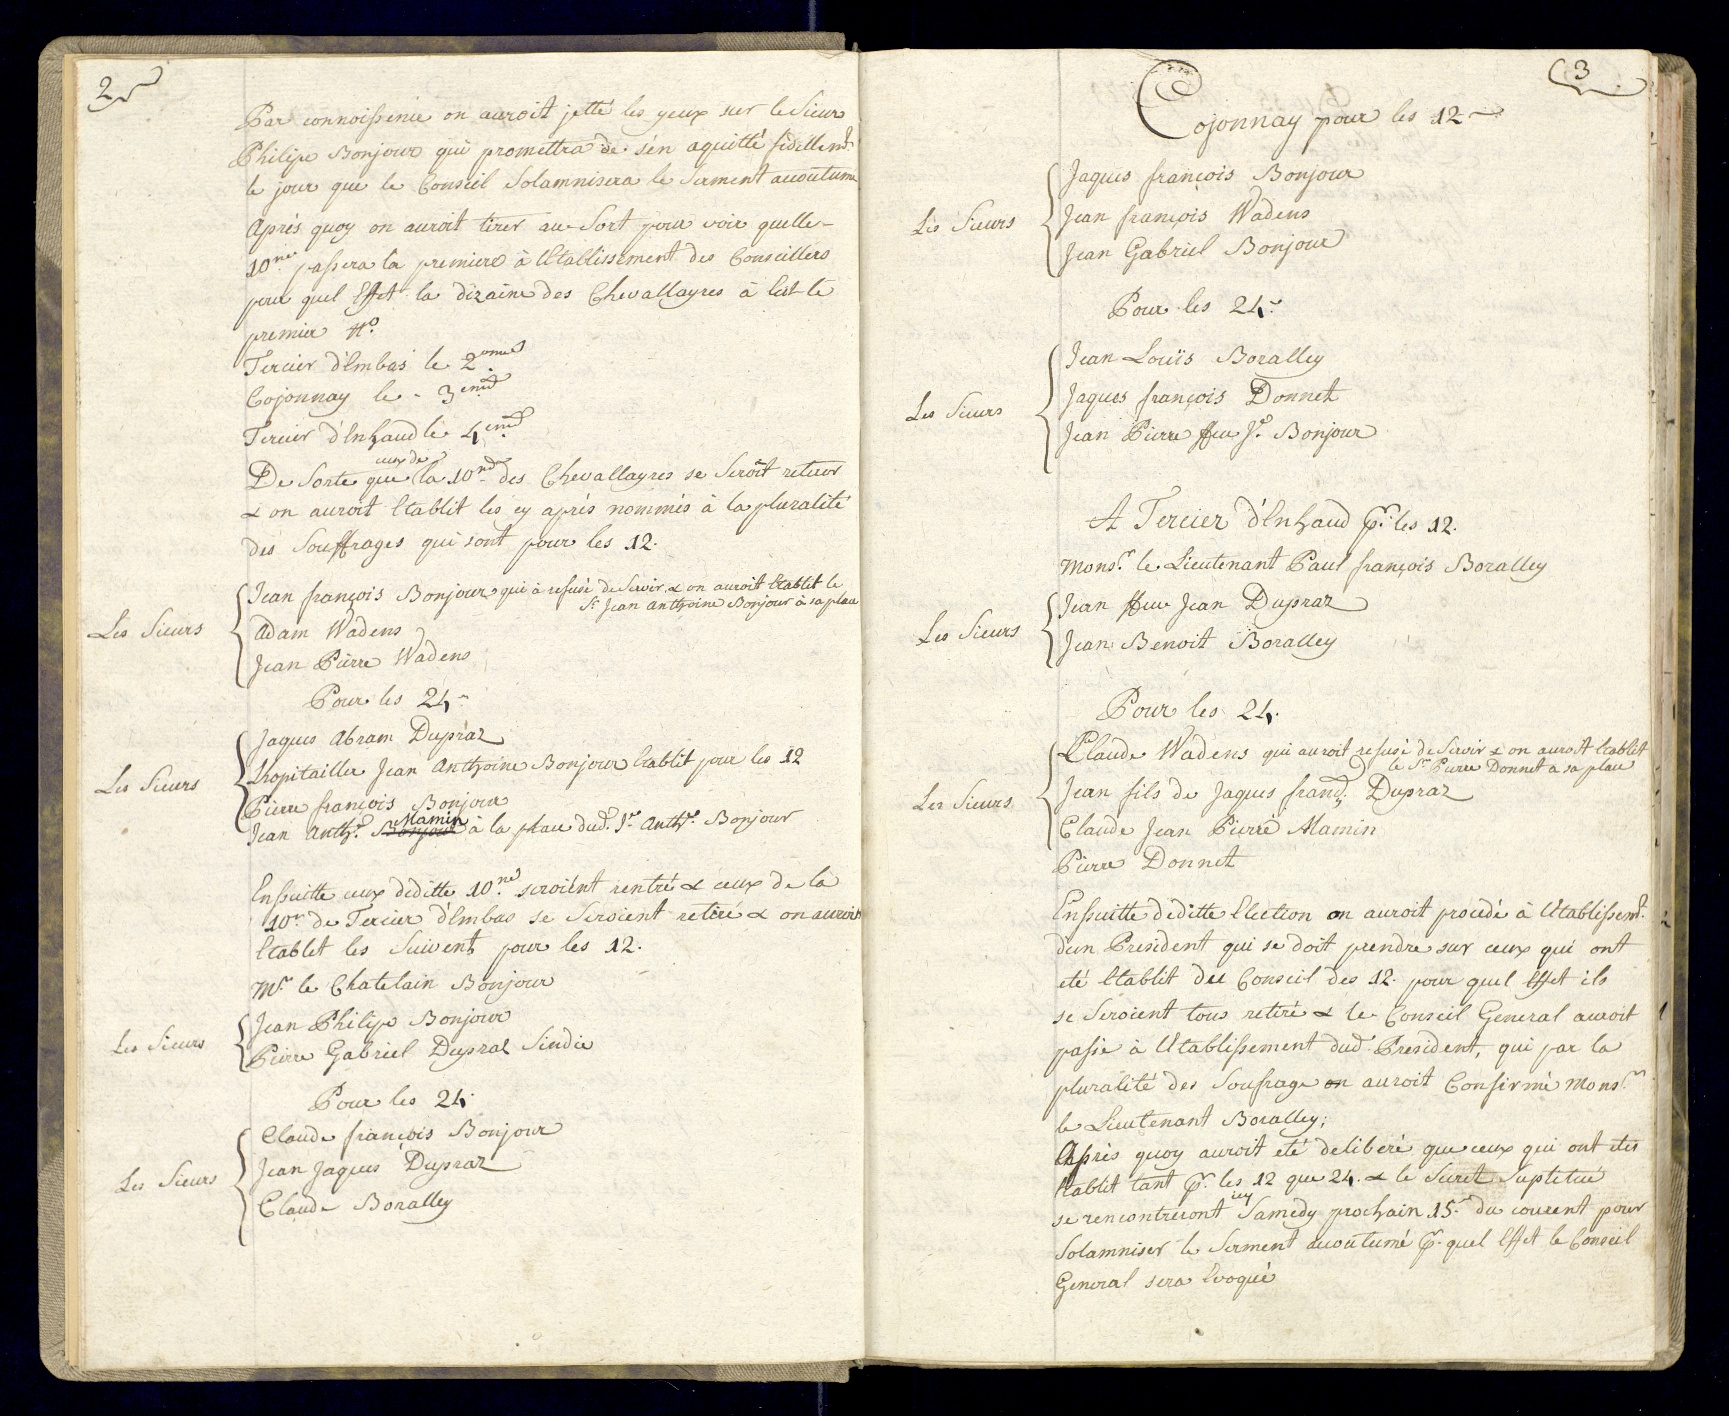 2
Par connoissence on auroit jetté les yeux sur le Sieur
Philipe Bonjour qui promettra de s'én aquitté fidellemt.
le jour que le Conseil Solamnisera le Serment accoutumé
Aprés quoy on auroit tirer au Sort pour voir quelle
10.ne passera la premiere à l'Etablissement des Conseillers
pour quel Effet la dizaine des Chevallayres à Eut le
premier No.
Tercier d'Embas le 2.ome
Cojonnay le 3.eme
Tercier d'Enhaud le 4.eme
ceux de
De Sorte que la 10.ne des Chevallayres se Seroit retirer
& on auroit Etablit les cy aprés nommés à la pluralité
des Souffrages qui sont pour les 12.
Jean françois Bonjour qui à refusé de Servir & on auroit Etablit le
Sr. Jean anthoine Bonjour à sa place
Les Sieurs
Adam Wadens
Jean Pierre Wadens
Pour les 24
Jaques Abram Dupraz
Les Sieurs
Lhopitailler Jean Anthoine Bonjour Etablit pour les 12
Pierre françois Bonjour
Mamin
Jean Anthe. Bonjour à la place dud. Jn. Anthe. Bonjour
Ensuitte ceux deditte 10.ne seroiént rentré & ceux de la
10.ne de Tercier d'Embas se Seroient retiré & on auroit
Etablit les Suivent pour les 12.
Mr. le Chatelain Bonjour
Les Sieurs
Jean Philipe Bonjour
Pierre Gabriel Dupraz Sindic
Pour les 24
Claude françois Bonjour
Les Sieurs
Jean Jaques Dupraz
Claude Boralley
3
Cojonnay pour les 12
Jaques françois Bonjour
Les Sieurs
Jean françois Wadens
Jean Gabriel Bonjour
Pour les 24
Jean Louïs Boralley
Les Sieurs
Jaques françois Donnet
Jean Pierre ffeu Je. Bonjour
A Tercier d'Enhaud pr. les 12.
Monsr. le Lieutenant Paul françois Boralley
Les Sieurs
Jean ffeu Jean Dupraz
Jean Benoit Boralley
Pour les 24.
Claude Wadens qui auroit refusé de Servir & on auroit Etablit
le Sr. Pierre Donnet a sa place
Les Sieurs
Jean fils de Jaques franç. Dupraz
Claude Jean Pierre Mamin
Pierre Donnet
Ensuitte deditte Election on auroit procédé à l'Etablissemt.
d'un President qui se doit prendre sur ceux qui ont
eté Etablit du Conseil des 12. pour quel Effet ils
se Seroient tous retiré & le Conseil General auroit
passé à l'Etablissement dud. President, qui par la
pluralité des Soufrage on auroit Confirmé Monsr.
le Lieutenant Boralley;
Aprés quoy auroit eté deliberé que ceux qui ont etés
Etablit tant pr. les 12 que 24. & le Suret Suptitué
icy
se rencontreront Samedy prochain 15. du courent pour
Solamniser le Serment accoutumé pr. quel Effet le Conseil
General sera Evoqué